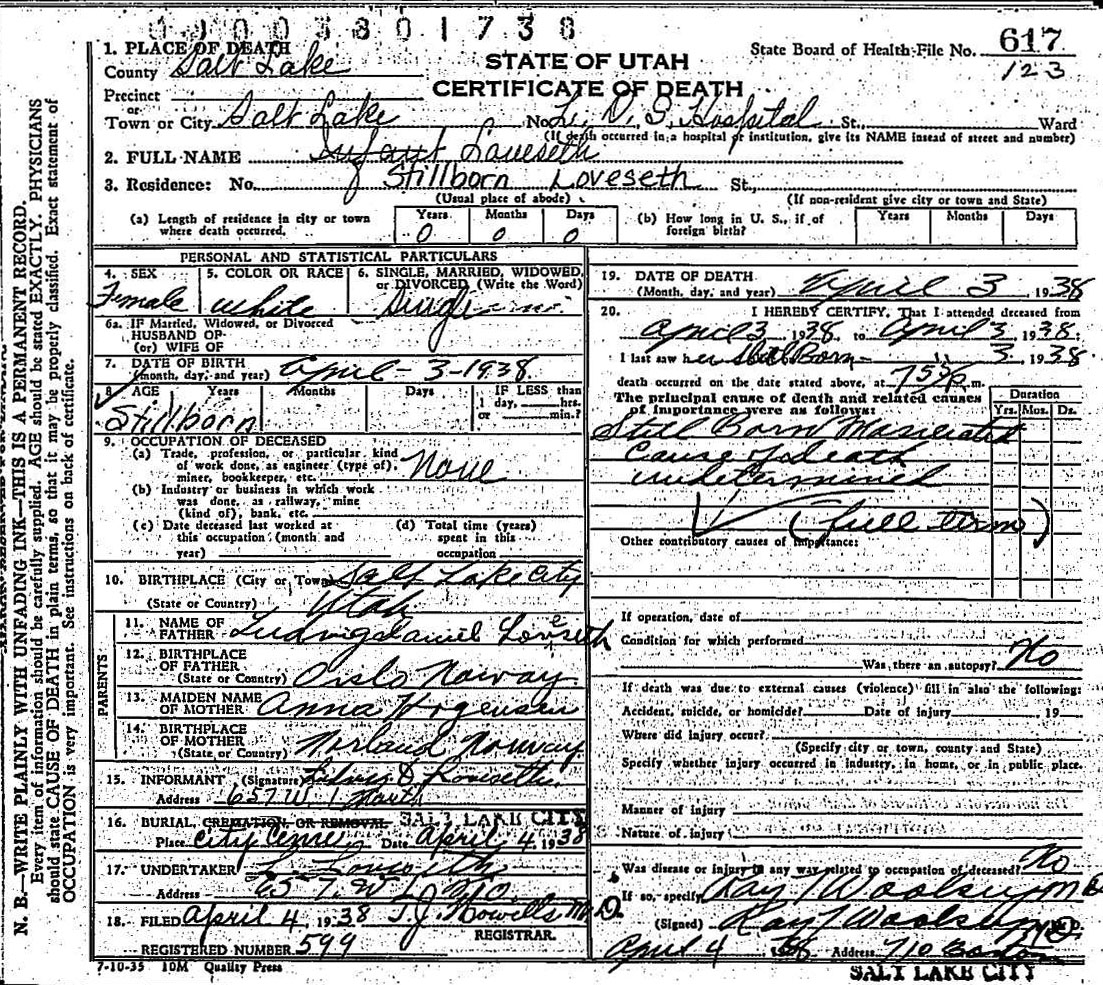 1003801738
1. PLACE OF DEATH
County Salt Lake
STATE OF UTAH
CERTIFICATE OF DEATH
State Board of Health File No. 617
123
Precinct
or
Town or City Salt Lake No. L. D. S. Hospital St., Ward
(If death occurred in a hospital or institution, give its NAME insead of street and number)
2. FULL NAME Infant Loveseth
Stillborn Loveseth
3. Residence: No. St.,
(Usual place of abode)
(If non-resident give city or town and State)
(a) Length of residence in city or town where death occurred. Years 0 Months 0 Days 0
(b) How long in U. S., if of foreign birth? Years Months Days
PERSONAL AND STATISTICAL PARTICULARS
4. SEX Female
5. COLOR OR RACE white
6. SINGLE, MARRIED, WIDOWED, or DIVORCED (Write the Word) Single
6a. IF Married, Widowed, or Divorced
HUSBAND OF
(or) WIFE OF
7. DATE OF BIRTH
(month, day, and year) April - 3 - 1938
8. AGE Years Months Days IF LESS than
1 day, hrs.
or min.?
Stillborn
9. OCCUPATION OF DECEASED
(a) Trade, profession, or particular kind
of work done, as engineer (type of),
miner, bookkeeper, etc. None
(b) Industry or business in which work
was done, as railway, mine
(kind of), bank, etc.
(c) Date deceased last worked at
this occupation (month and
year)
(d) Total time (years)
spent in this
occupation
10. BIRTHPLACE (City or Town) Salt Lake City
(State or Country) Utah
PARENTS
11. NAME OF
FATHER Ludvig daniel Loveseth
12. BIRTHPLACE
OF FATHER
(State or Country) Norway
13. MAIDEN NAME
OF MOTHER Anna
14. BIRTHPLACE
OF MOTHER
(State or Country) Norland Norway
15. INFORMANT (Signature) Ludvig D Loveseth
Address 657 W. 1 North
16. BURIAL, CREMATION, OR REMOVAL SALT LAKE CITY
Place City Cemey Date April 4, 1938
17. UNDERTAKER L Loveseth
Address 657 W 1 No.
18. FILED April 4, 1938 T. J. Howells M. D.
REGISTRAR.
REGISTERED NUMBER 599
7-10-35 10M Quality Press
19. DATE OF DEATH
(Month, day, and year) April 3, 1938
20. I HEREBY CERTIFY, That I attended deceased from
April 3 1938 to April 3 1938.
I last saw her Still Born 3, 1938
death occurred on the date stated above, at 7 55 p. m.
The principal cause of death and related causes
of importance were as follows:
Duration
Yrs. Mos. Ds.
Still Born Macerated
Cause of Death
undetermined
(full term)
Other contributory causes of importance:
If operation, date of
Condition for which performed
Was there an autopsy? No
If death was due to external causes (violence) fill in also the following:
Accident, suicide, or homicide? Date of injury 19
Where did injury occur?
(Specify city or town, county and State)
Specify whether injury occurred in industry, in home, or in public place.
Manner of injury
Nature of injury
Was disease or injury in any way related to occupation of deceased? No
If so, specify Ray T Woolsey M D
(Signed) Ray T Woolsey M. D.
April 4 38 Address 710 Boston
SALT LAKE CITY
N. B.—WRITE PLAINLY WITH UNFADING INK—THIS IS A PERMANENT RECORD.
Every item of information should be carefully supplied. AGE should be stated EXACTLY. PHYSICIANS
should state CAUSE OF DEATH in plain terms, so that it may be properly classified. Exact statement of
OCCUPATION is very important. See instructions on back of certificate.